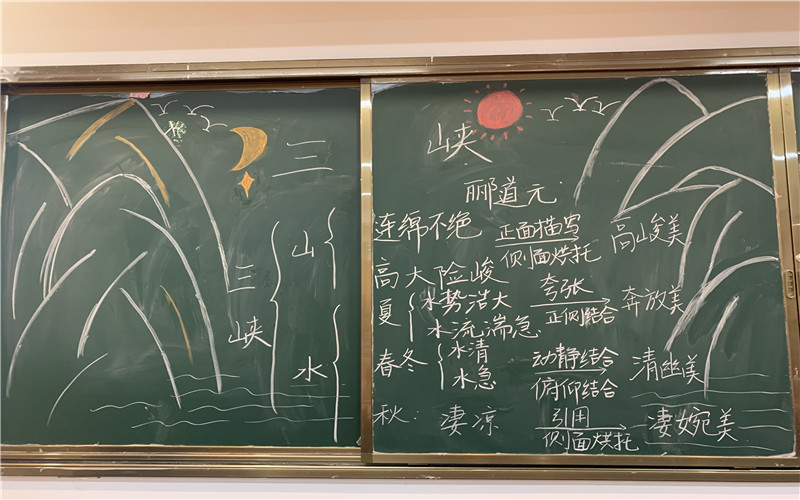 三峡
郦道元
三峡
山
连绵不绝 正面描写 侧面烘托 高峻美
高大险峻
水
夏 水势浩大 夸张 奔放美
水流湍急 正侧结合
春冬 水清 动静结合 清幽美
水急 俯仰结合
秋: 凄凉 引用 凄婉美
侧面烘托